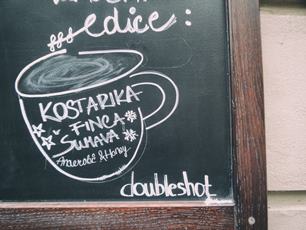 edice:
KOSTARIKA
FINCA
ŠUMAVA
Anaerobic & Honey
doubleshot